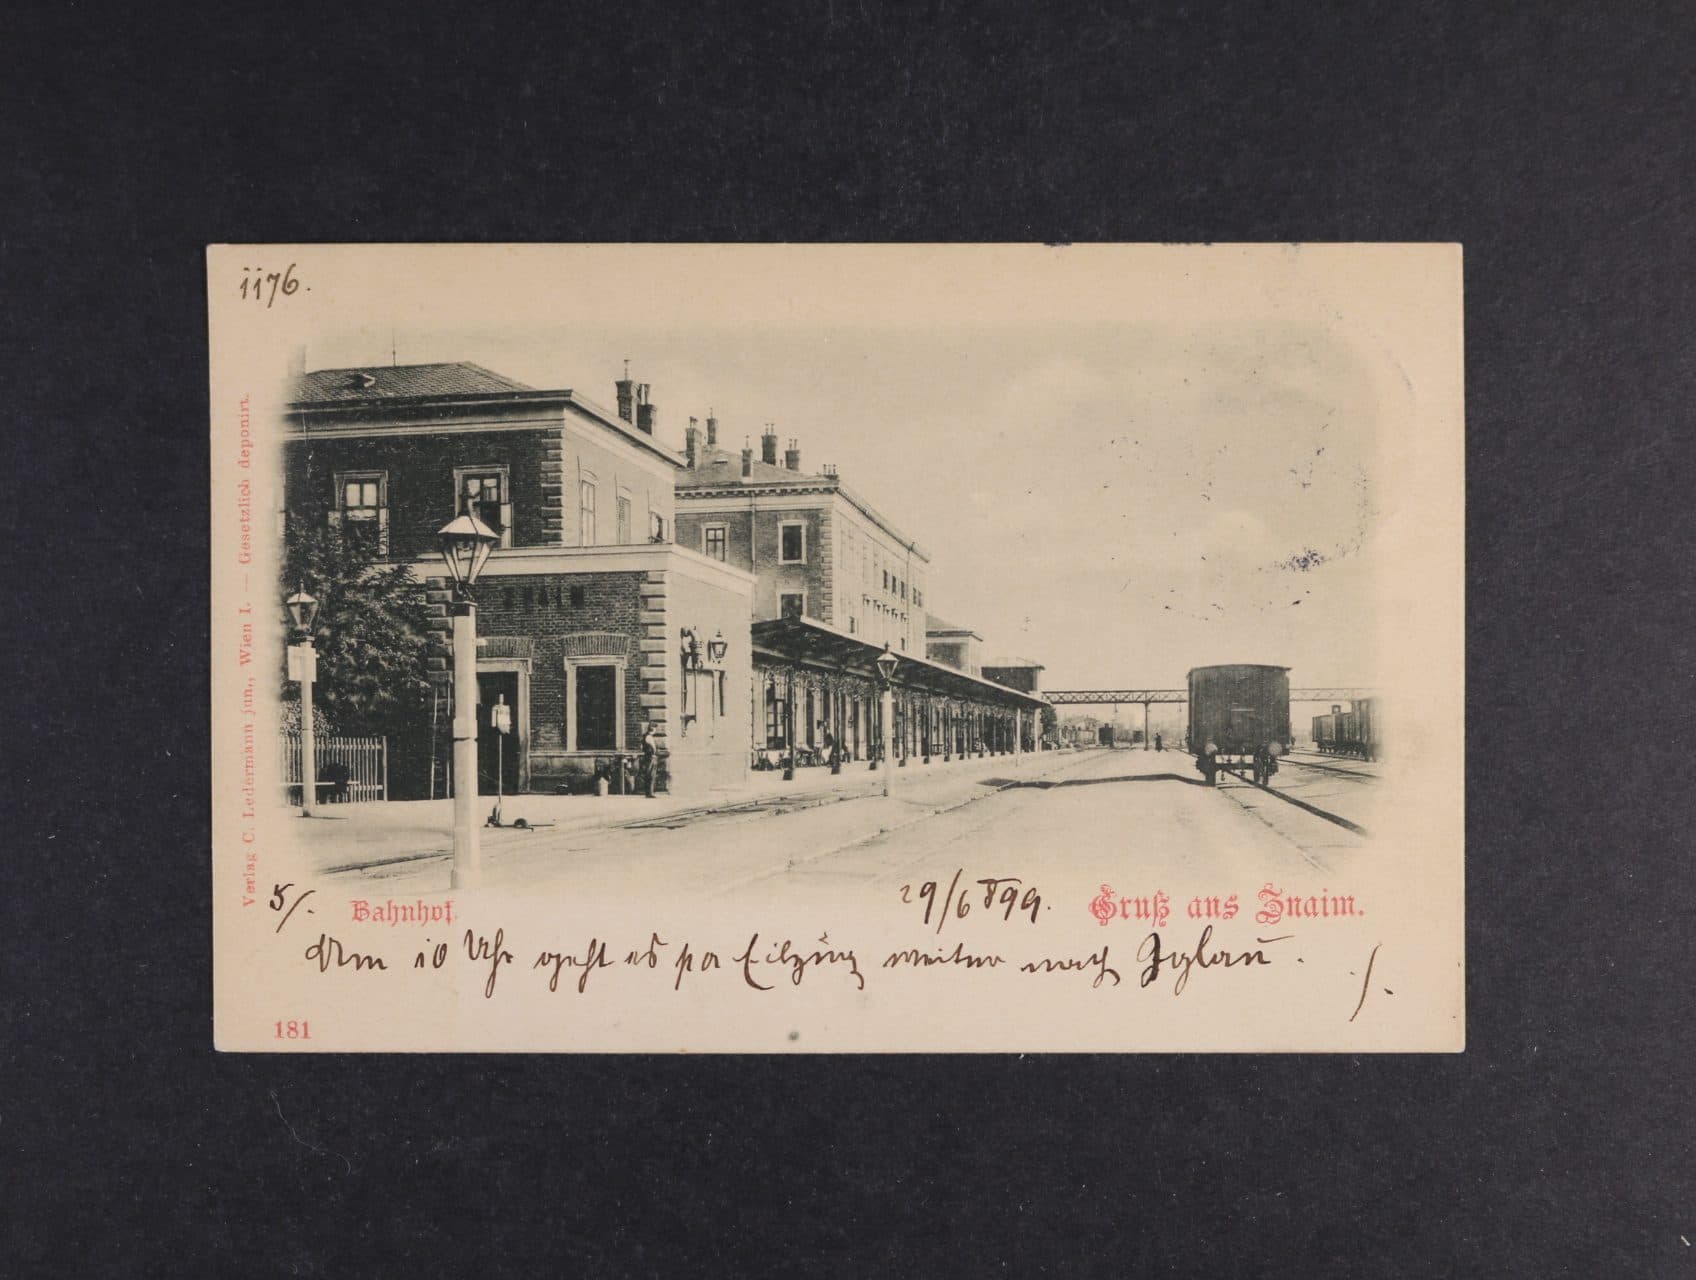 1176.
Verlag C. Ledermann jun., Wien I. — Gesetzlich deponirt.
ZNAIM
5/.
Bahnhof.
29/6 899.
Gruß aus Znaim.
Um 10 Uhr geht es per Eilzug weiter nach Iglau. ./.
181